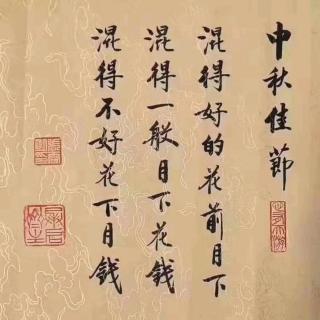 中秋佳節
混得好的花前月下
混得一般月下花錢
混得不好花下月錢